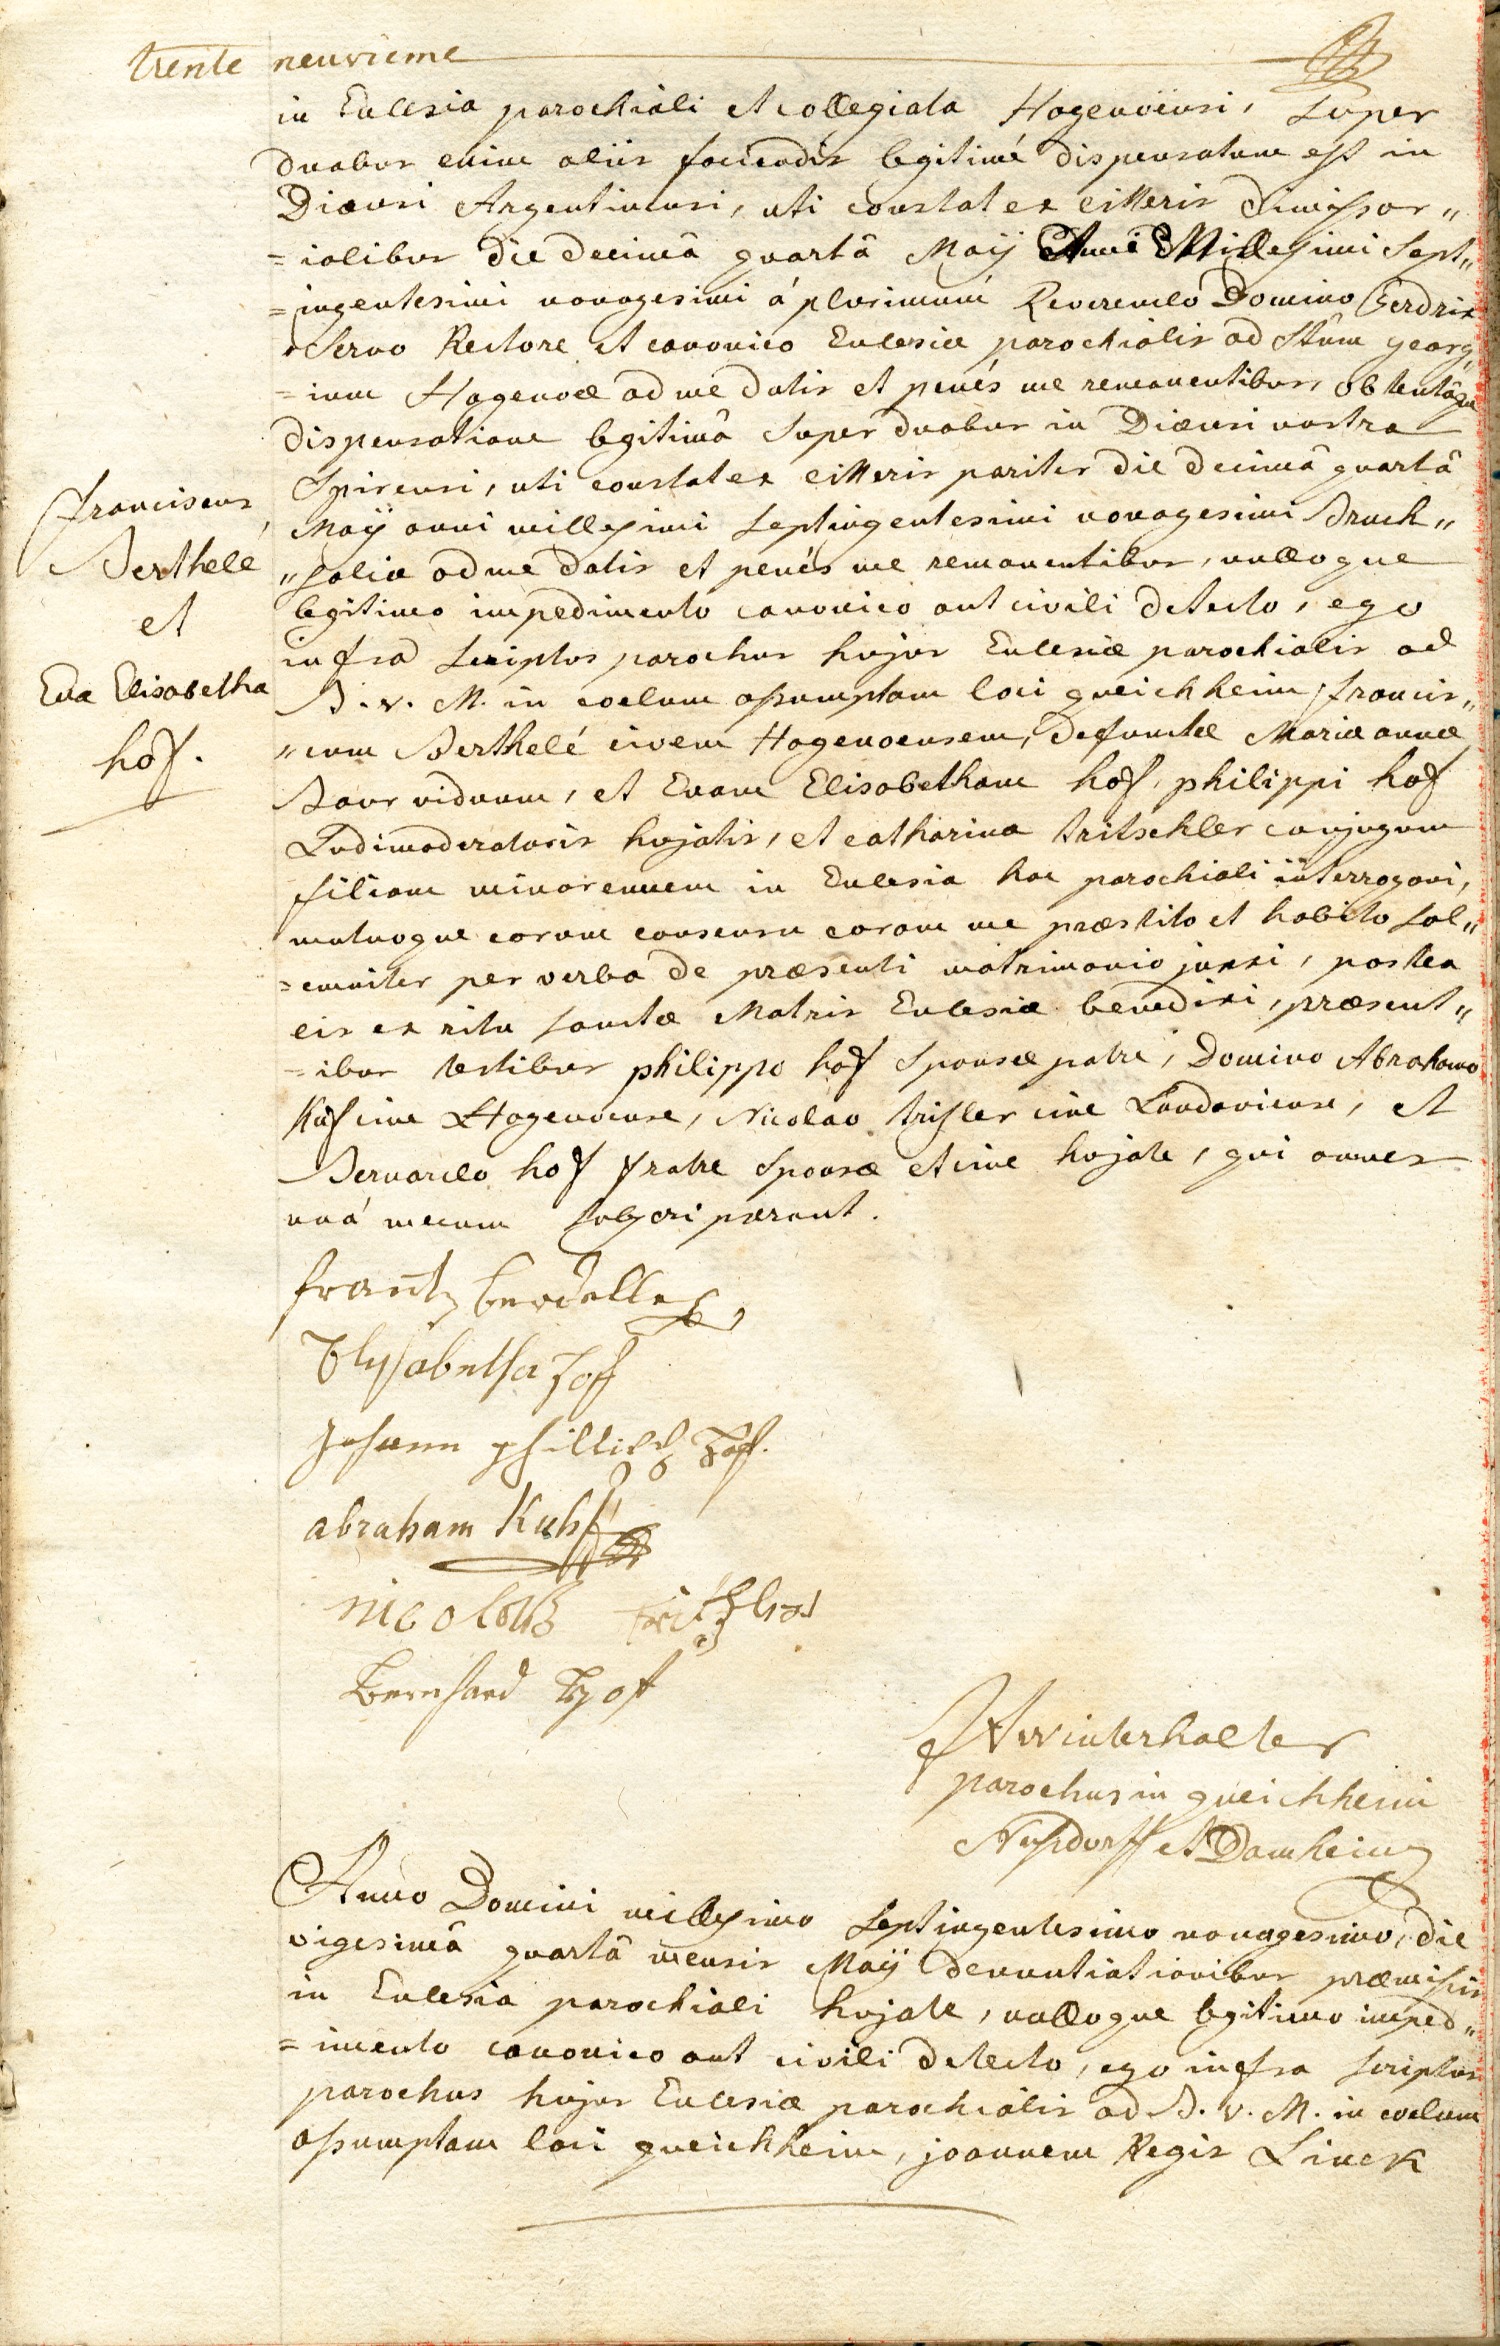 trente neuvieme
in Eclesia parochiali et collegiata Hagenoiensi, super
duabus enim aliis faciendis legitimé dispensatum est in
Diœcesi Argentinensi, uti constat ex litteris dimissor„
=ialibus die decimâ quartâ Maÿ Anni Millesimi Sept„
=ingentesimi nonagesimi á plurimum Reverendo Domino
Rectore et canonico Eclesiæ parochialis ad Stum georg„
=ium Hagenoæ ad me datis et penés me remanentibus, obtentâque
dispensatione legitimâ super duabus in Diœcesi nostra
Spirensi, uti constat ex litteris pariter die decimâ quartâ
Maÿ anni millesimi septingentesimi nonagesimi Bruch„
„saliæ ad me datis et penés me remanentibus, nulloque
legitimo impedimento canonico aut civili detecto, ego
infra scriptus parochus hujus Eclesiæ parochialis ad
B. v. M. in coelum assumptam loci queichheim, francis„
„cum Berthelé civem Hagenoensem, defunctæ Mariæ annæ
Baur viduum, et Evam Elisabetham hof, philippi hof
Ludimoderatoris hujatis, et catharina tritschler conjugum
filiam minorennem in Eclesia hac parochiali interrogavi,
mutuoque eorum consensu coram me præstito et habito sol„
=emniter per verba de præsenti matrimonio junxi, postea
eis ex ritu sanctæ Matris Eclesiæ benedixi, præsent„
=ibus testibus philippo hof sponsæ patre, Domino Abrahamo
cive Hagenoense, Nicolao trisler cive Landaviense, et
Bernardo hof fratre sponsæ et cive hujate, qui omnes
uná mecum subscripserunt.
franciscus
Berthelé
et
Eva Elisabetha
hof.
frantz berdelle
Elysabetha hof
Johann phillip Hoff.
abraham Kuhff
nicolauß
Bernhard Hof
Winterhalter
parochus in queichheim
Nusdorff et Damheim
Anno Domini millesimo septingentesimo nonagesimo, die
vigesimâ quartâ mensis Maÿ denuntiationibus præmissis
in Eclesia parochiali hujate, nulloque legitimo imped„
=imento canonico aut civili detecto, ego infra scriptus
parochus hujus Eclesiæ parochialis ad B. v. M. in coelum
assumptam loci queichheim, joannem Regis Linck